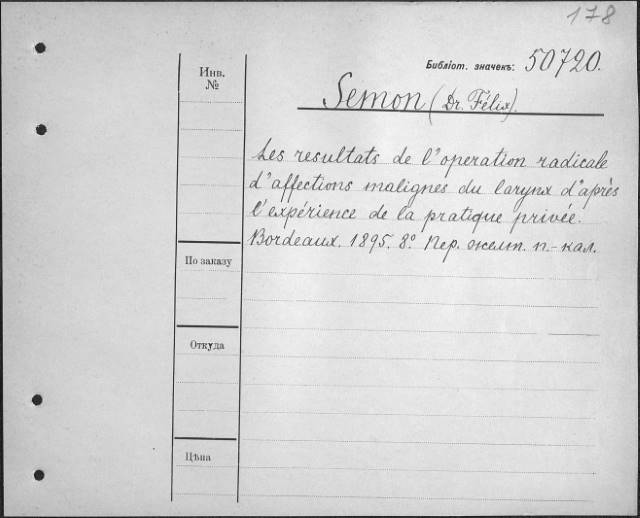 178
Инв.
№
Библіот. значекъ: 50720.
Semon (Dr. Félix).
Les resultats de l'operation radicale
d'affections malignes du larynx d'après
l'expérience de la pratique privée.
Bordeaux. 1895. 8º Пер. желт. п.-кал.
По заказу
Откуда
Цѣна